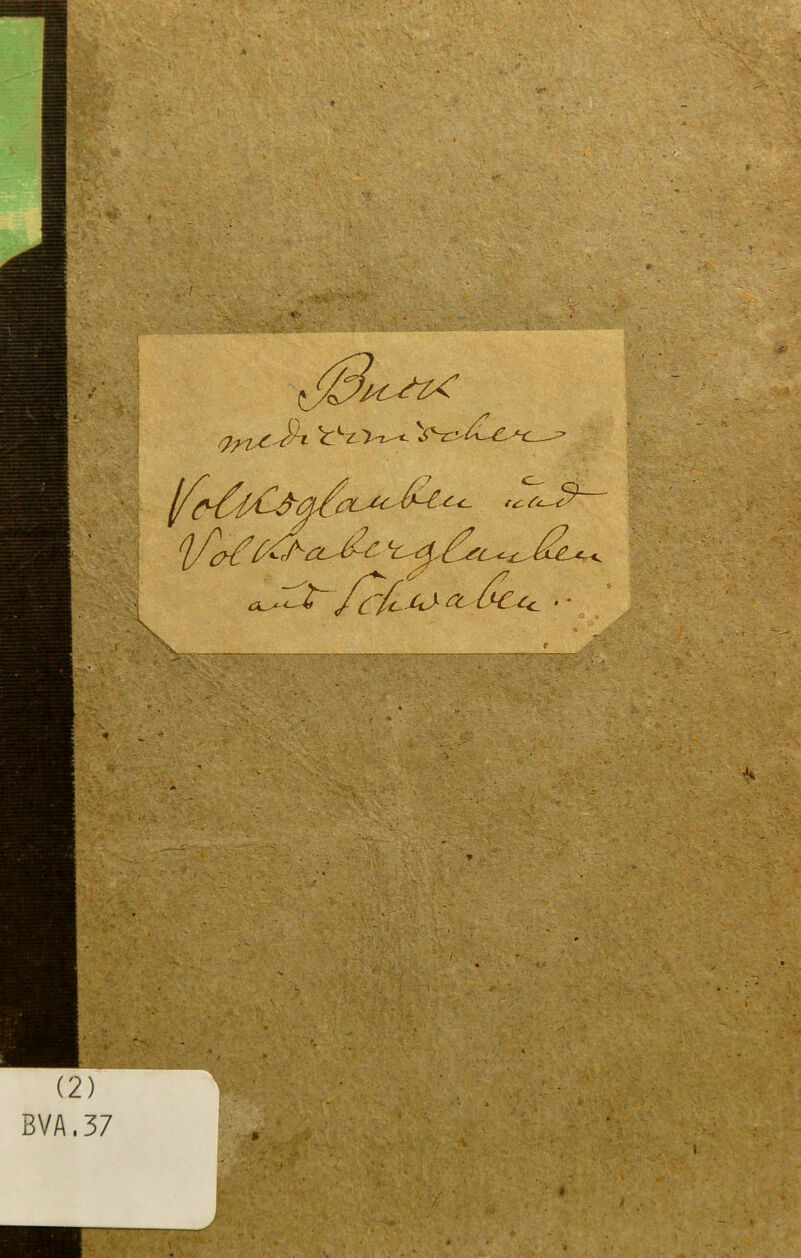 Buck
medicinischer
Volksglauben und
Volksaberglauben
aus Schwaben..
(2)
BVA.37